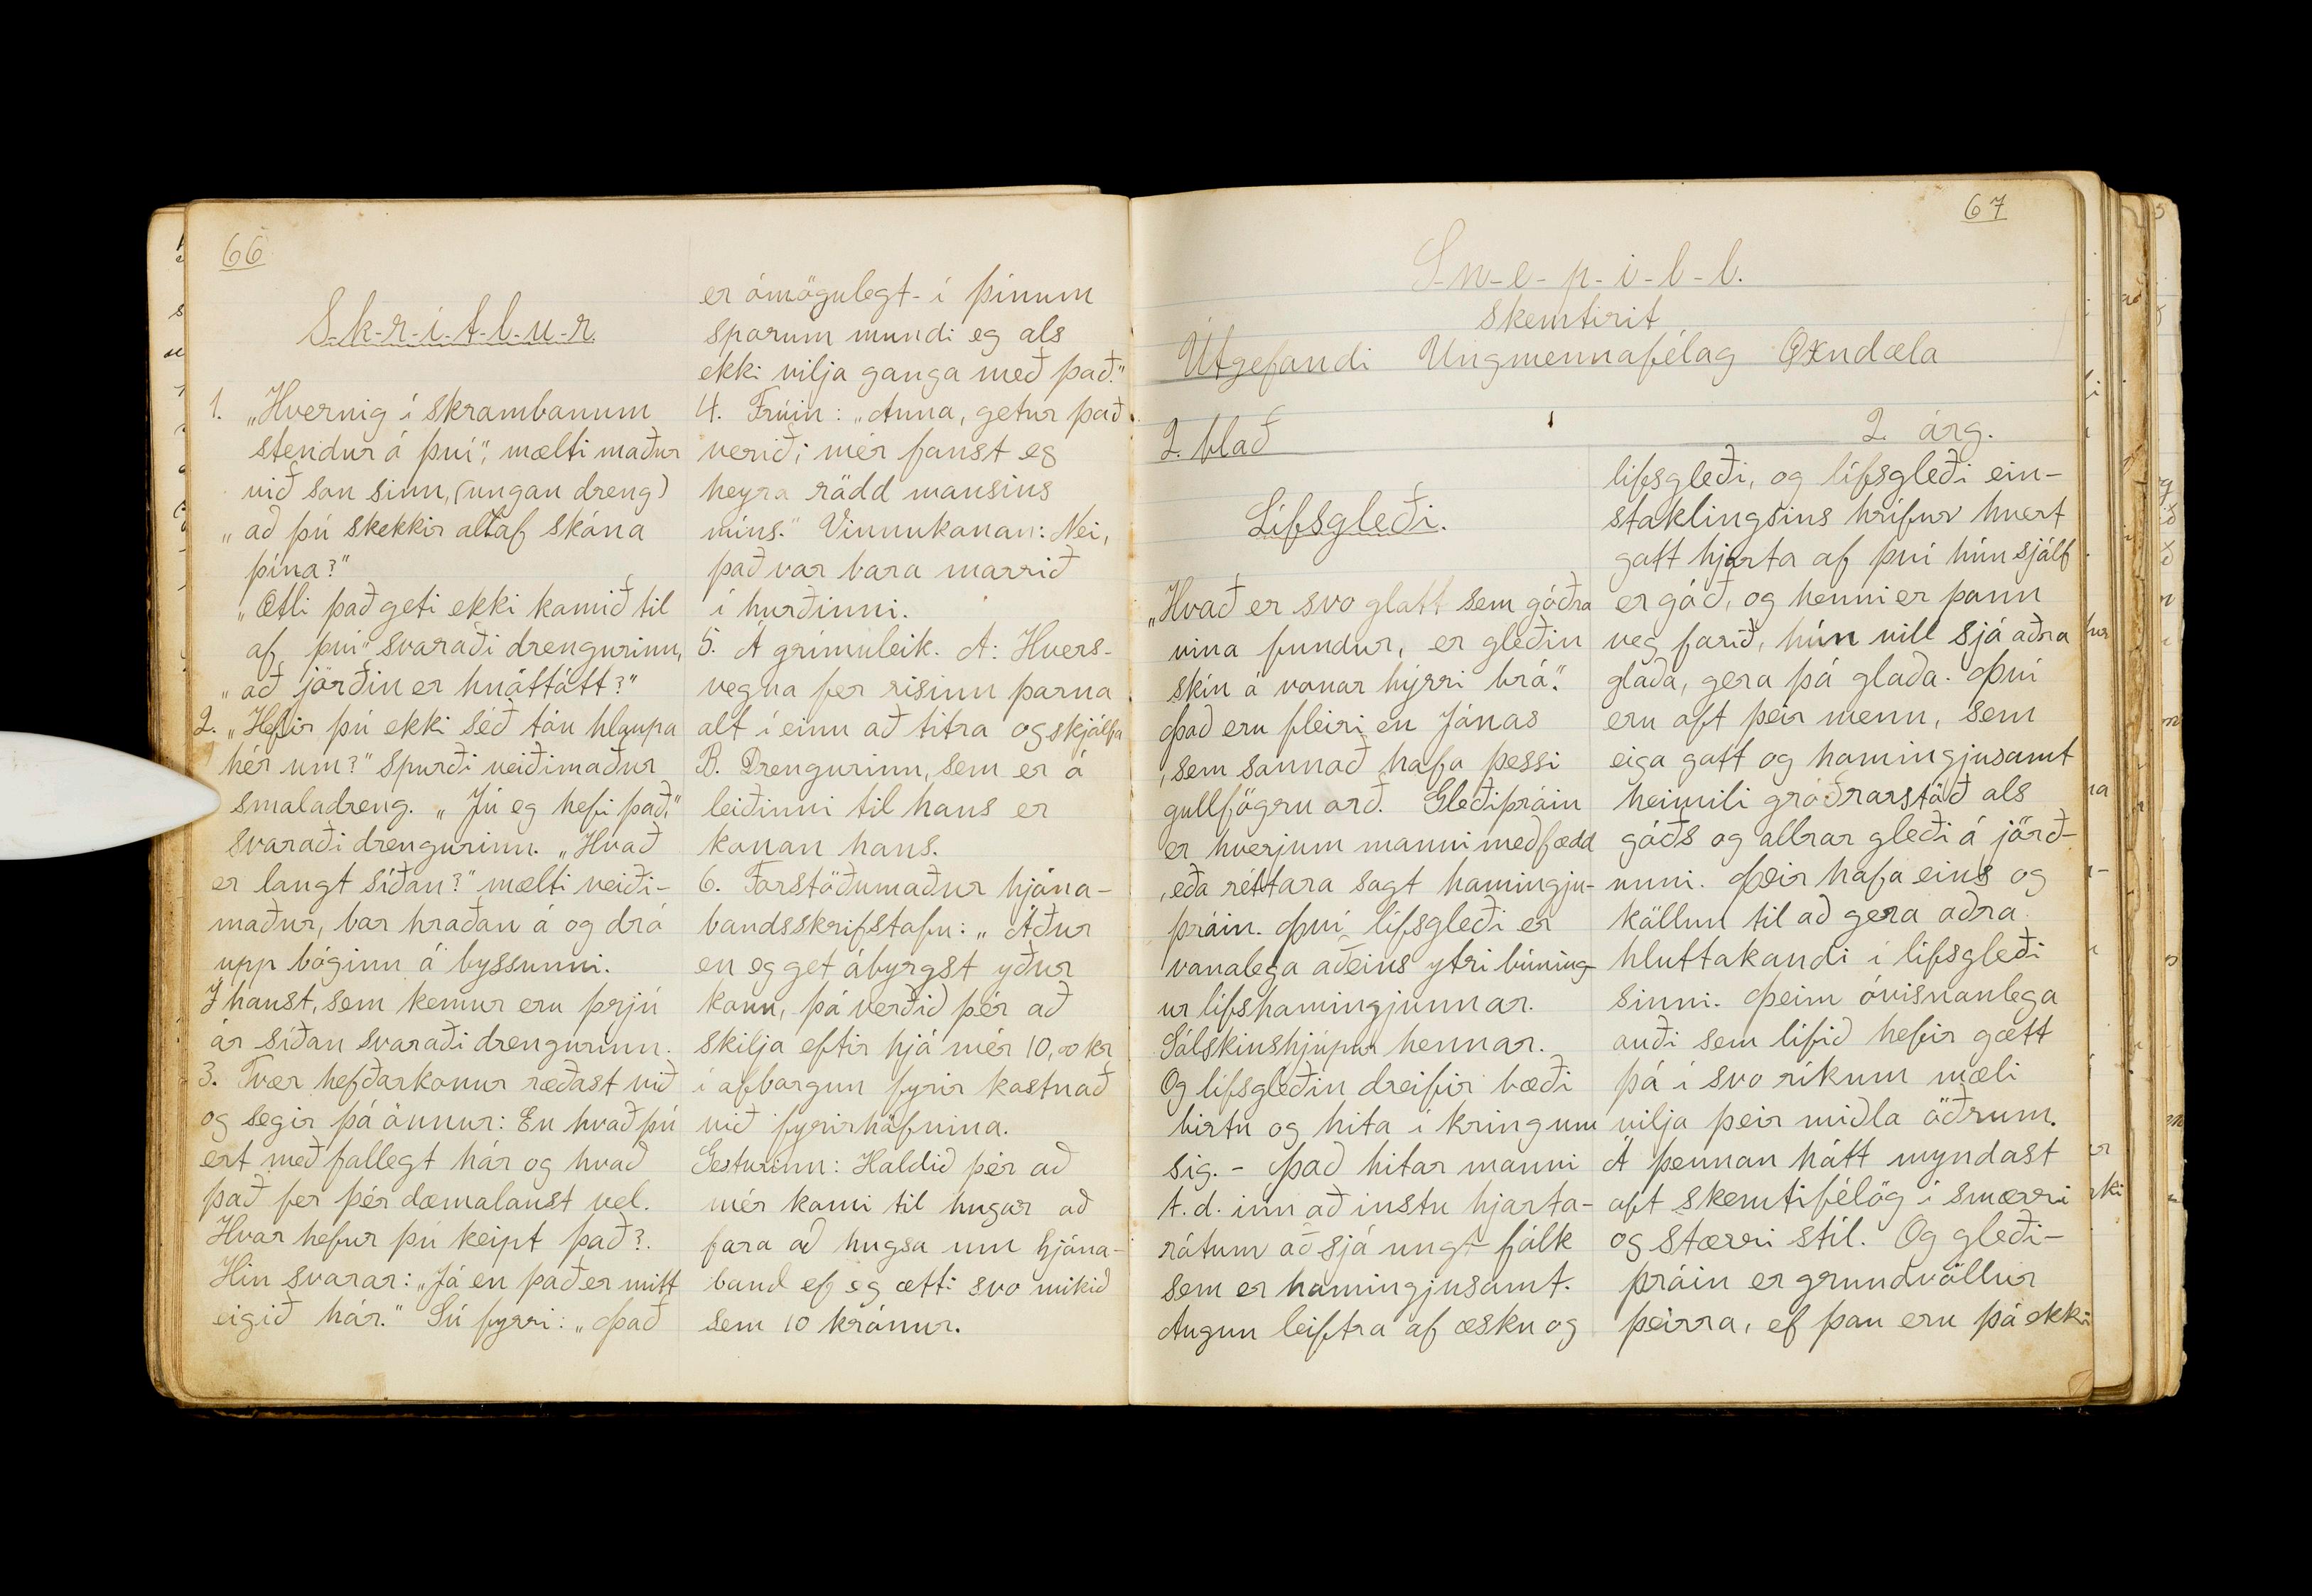 66
S-k-r-í-t-l-u-r
1. „Hvernig í skrambanum
stendur á því", mælti maður
við son sinn, (ungan dreng)
„að þú skekkir altaf skóna
þína?"
„Ætli það geti ekki komið til
af því" svaraði drengurinn,
„að jörðin er hnöttótt?"
2. „Hefir þú ekki séð tóu hlaupa
hér um?" spurði veiðimaður
smaladreng. „Jú eg hefi það,"
svaraði drengurinn. „Hvað
er langt síðan?" mælti veiði-
maður, bar hraðan á og dró
upp bóginn á byssunni.
Í haust, sem kemur eru þrjú
ár síðan svaraði drengurinn.
3. Tvær hefðarkonur ræðast við
og segir þá önnur: En hvað þú
ert með fallegt hár og hvað
það fer þér dæmalaust vel.
Hvar hefur þú keipt það?.
Hin svarar: „Já en það er mitt
eigið hár." Sú fyrri: „Það
er ómögulegt - í þínum
sporum mundi eg als
ekki vilja ganga með það."
4. Frúin: „Anna, getur það
verið; mér fanst eg
heyra rödd mansins
míns." Vinnukonan: Nei,
það var bara marrið
í hurðinni.
5. Á grímuleik. A: Hvers-
vegna fer risinn þarna
alt í einu að titra og skjálfa
B. Drengurinn, sem er á
leiðinni til hans er
konan hans.
6. Forstöðumaður hjóna-
bandsskrifstofu: „Áður
en eg get ábyrgst yður
konu, þá verðið þér að
skilja eftir hjá mér 10,00 kr
í afborgun fyrir kostnað
við fyrirhöfnina.
Gesturinn: Haldið þér að
mér komi til hugar að
fara að hugsa um hjóna-
band ef eg ætti svo mikið
sem 10 krónur.
67
S-n-e-p-i-l-l.
Skemtirit
Útgefandi Ungmennafélag Öxndæla
2. blað
2. árg.
Lífsgleði.
„Hvað er svo glatt sem góðra
vina fundur, er gleðin
skín á vonar hýrri brá".
Það eru fleiri en Jónas
, sem sannað hafa þessi
gullfögru orð. Gleðiþráin
er hverjum manni meðfædd
, eða réttara sagt hamingju-
þráin. Því lífsgleði er
vanalega aðeins ytri búning-
ur lífshamingjunnar.
Sólskinshjúpur hennar.
Og lífsgleðin dreifir bæði
birtu og hita í kringum
sig. - Það hitar manni
t.d. inn að instu hjarta-
rótum að sjá ungt fólk
sem er hamingjusamt.
Augun leiftra af æsku og
lífsgleði, og lífsgleði ein-
staklingsins hrífur hvert
gott hjarta af því hún sjálf
er góð, og henni er þann
veg farið, hún vill sjá aðra
glaða, gera þá glaða. Því
eru oft þeir menn, sem
eiga gott og hamingjusamt
heimili gróðrarstöð als
góðs og allrar gleði á jörð-
unni. Þeir hafa eins og
köllun til að gera aðra
hluttakandi í lífsgleði
sinni. Þeim óvisnanlega
auði sem lífið hefir gætt
þá í svo ríkum mæli
vilja þeir miðla öðrum.
Á þennan hátt myndast
oft skemtifélög í smærri
og stærri stíl. Og gleði-
þráin er grundvöllur
þeirra, ef þau eru þá ekki